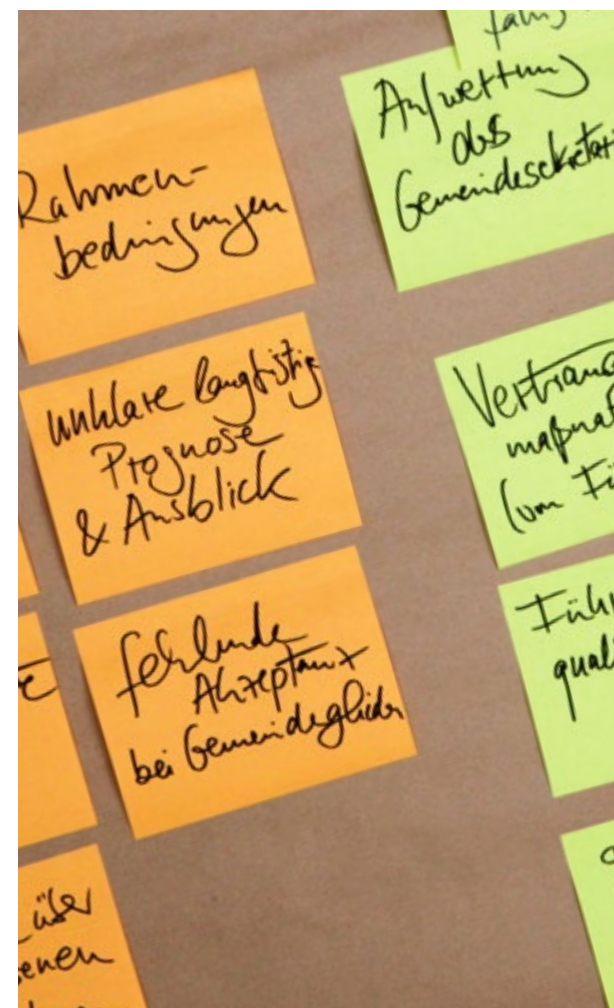 Rahmen-
bedingungen
unklare langfristige
Prognose
& Ausblick
fehlende
Akzeptanz
bei Gemeindeglieder
über
enen
Aufwertung
des
Gemeindesekretari
Vertraue
maßna
(vom Fü
Führ
quali